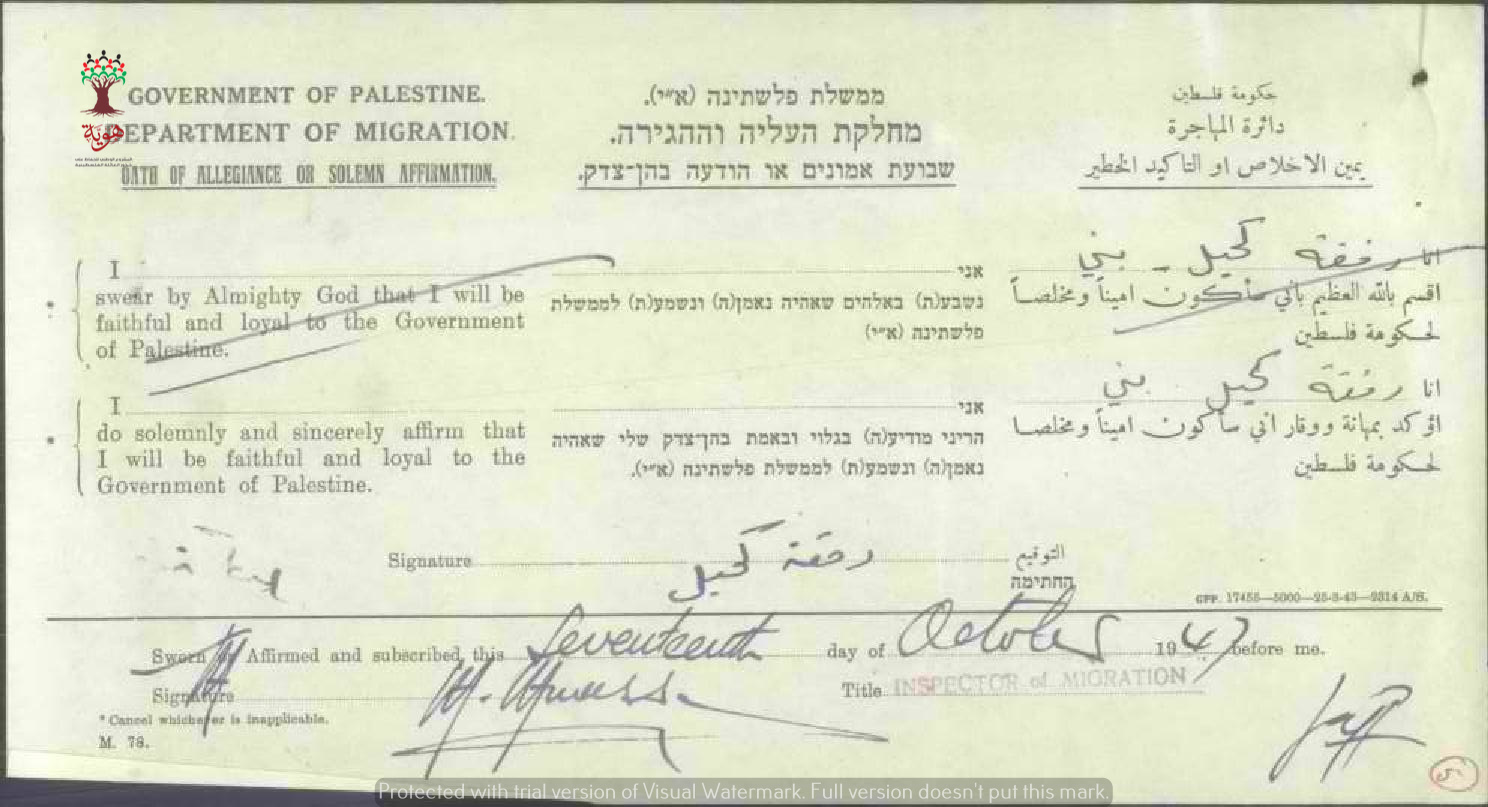 GOVERNMENT OF PALESTINE.
DEPARTMENT OF MIGRATION.
OATH OF ALLEGIANCE OR SOLEMN AFFIRMATION.
ממשלת פלשתינה (א״י).
מחלקת העליה וההגירה.
שבועת אמונים או הודעה בהן־צדק.
حكومة فلسطين
دائرة المهاجرة
يمين الاخلاص او التاكيد الخطير
هوية
* I
swear by Almighty God that I will be
faithful and loyal to the Government
of Palestine.
אני
נשבע(ה) באלהים שאהיה נאמן(ה) ונשמע(ת) לממשלת
פלשתינה (א״י)
انا رفقة كحيل
اقسم بالله العظيم بأني سأكون اميناً ومخلصاً
لحكومة فلسطين
* I
do solemnly and sincerely affirm that
I will be faithful and loyal to the
Government of Palestine.
אני
הריני מודיע(ה) בגלוי ובאמת בהן־צדק שלי שאהיה
נאמן(ה) ונשמע(ת) לממשלת פלשתינה (א״י).
انا رفقة كحيل
اؤكد بمهانة ووقار اني سأكون اميناً ومخلصا
لحكومة فلسطين
Signature رفقة كحيل التوقيع
החתימה
GPP. 17455—5000—25-8-43—2314 A/S.
Sworn Affirmed and subscribed, this Seventeenth day of October 1947 before me.
Signature
Title INSPECTOR of MIGRATION
* Cancel whichever is inapplicable.
M. 78.
Protected with trial version of Visual Watermark. Full version doesn't put this mark.